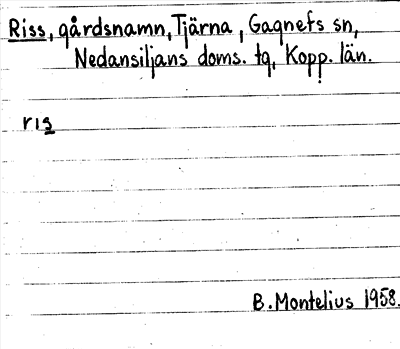 Riss, gårdsnamn, Tjärna, Gagnefs sn,
Nedansiljans doms. tg, Kopp. län.
ris
B. Montelius 1958.